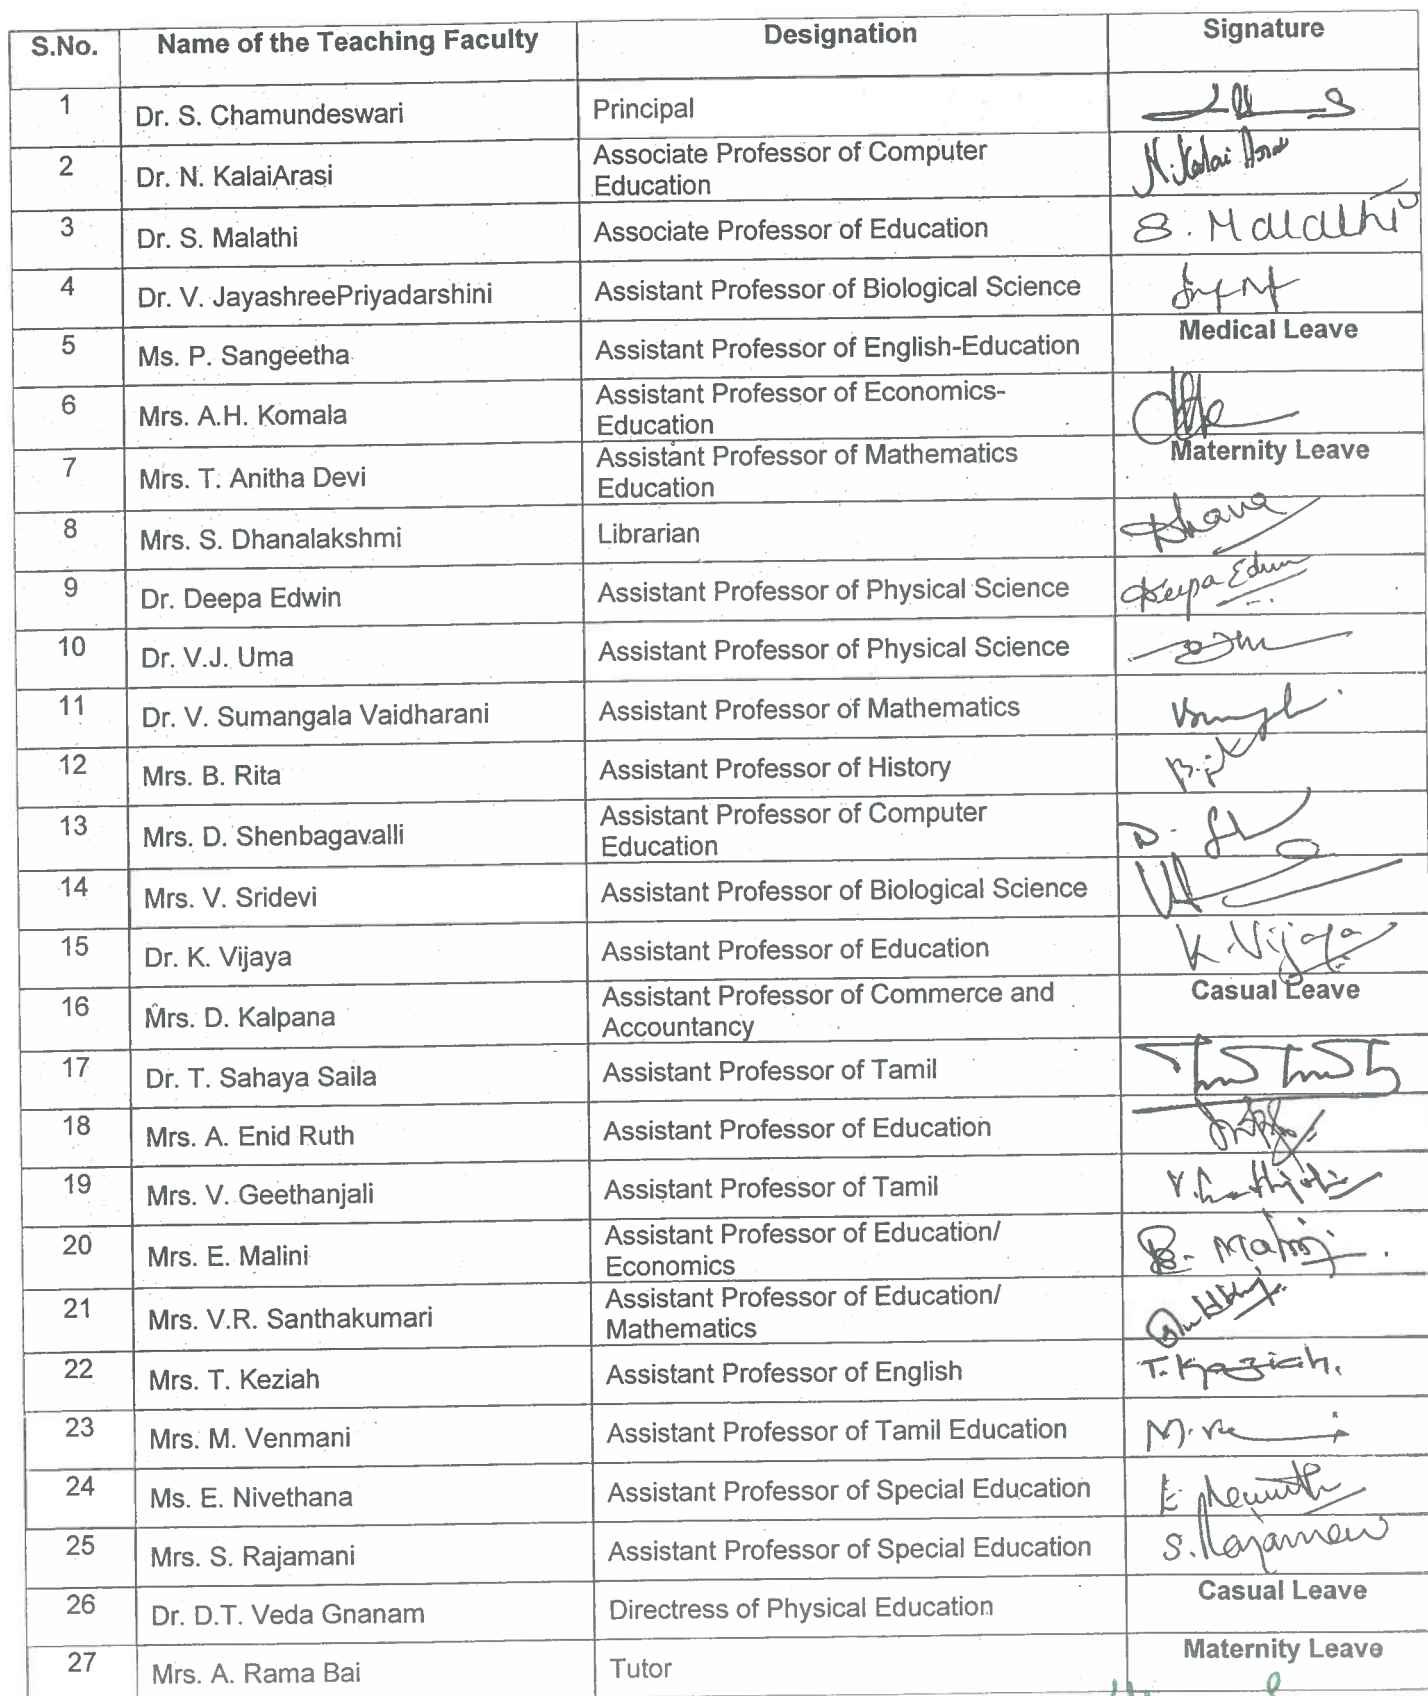 S.No. Name of the Teaching Faculty Designation Signature
1 Dr. S. Chamundeswari Principal
2 Dr. N. KalaiArasi Associate Professor of Computer
Education N. Kalai Arasi
3 Dr. S. Malathi Associate Professor of Education S. Malathi
4 Dr. V. JayashreePriyadarshini Assistant Professor of Biological Science
5 Ms. P. Sangeetha Assistant Professor of English-Education Medical Leave
6 Mrs. A.H. Komala Assistant Professor of Economics-
Education
7 Mrs. T. Anitha Devi Assistant Professor of Mathematics
Education Maternity Leave
8 Mrs. S. Dhanalakshmi Librarian Dhana
9 Dr. Deepa Edwin Assistant Professor of Physical Science Deepa Edwin
10 Dr. V.J. Uma Assistant Professor of Physical Science
11 Dr. V. Sumangala Vaidharani Assistant Professor of Mathematics
12 Mrs. B. Rita Assistant Professor of History
13 Mrs. D. Shenbagavalli Assistant Professor of Computer
Education
14 Mrs. V. Sridevi Assistant Professor of Biological Science
15 Dr. K. Vijaya Assistant Professor of Education K. Vijaya
16 Mrs. D. Kalpana Assistant Professor of Commerce and
Accountancy Casual Leave
17 Dr. T. Sahaya Saila Assistant Professor of Tamil
18 Mrs. A. Enid Ruth Assistant Professor of Education
19 Mrs. V. Geethanjali Assistant Professor of Tamil
20 Mrs. E. Malini Assistant Professor of Education/
Economics E. Malini
21 Mrs. V.R. Santhakumari Assistant Professor of Education/
Mathematics
22 Mrs. T. Keziah Assistant Professor of English T. Keziah.
23 Mrs. M. Venmani Assistant Professor of Tamil Education
24 Ms. E. Nivethana Assistant Professor of Special Education
25 Mrs. S. Rajamani Assistant Professor of Special Education S. Rajamani
26 Dr. D.T. Veda Gnanam Directress of Physical Education Casual Leave
27 Mrs. A. Rama Bai Tutor Maternity Leave